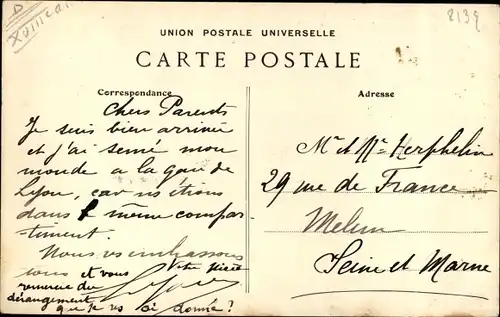 8139
UNION POSTALE UNIVERSELLE
CARTE POSTALE
Correspondance
Chers Parents
Je suis bien arrivée
et j'ai semé mon
monde a la gare de
Lyon, car ns étions
dans le même compar-
timent.
Nous vs embrassons
tous et vous
remercie du
dérangement
que je vs ai donné ?
Votre
Adresse
Mr et Me Herphelin
29 rue de France
Melun
Seine et Marne